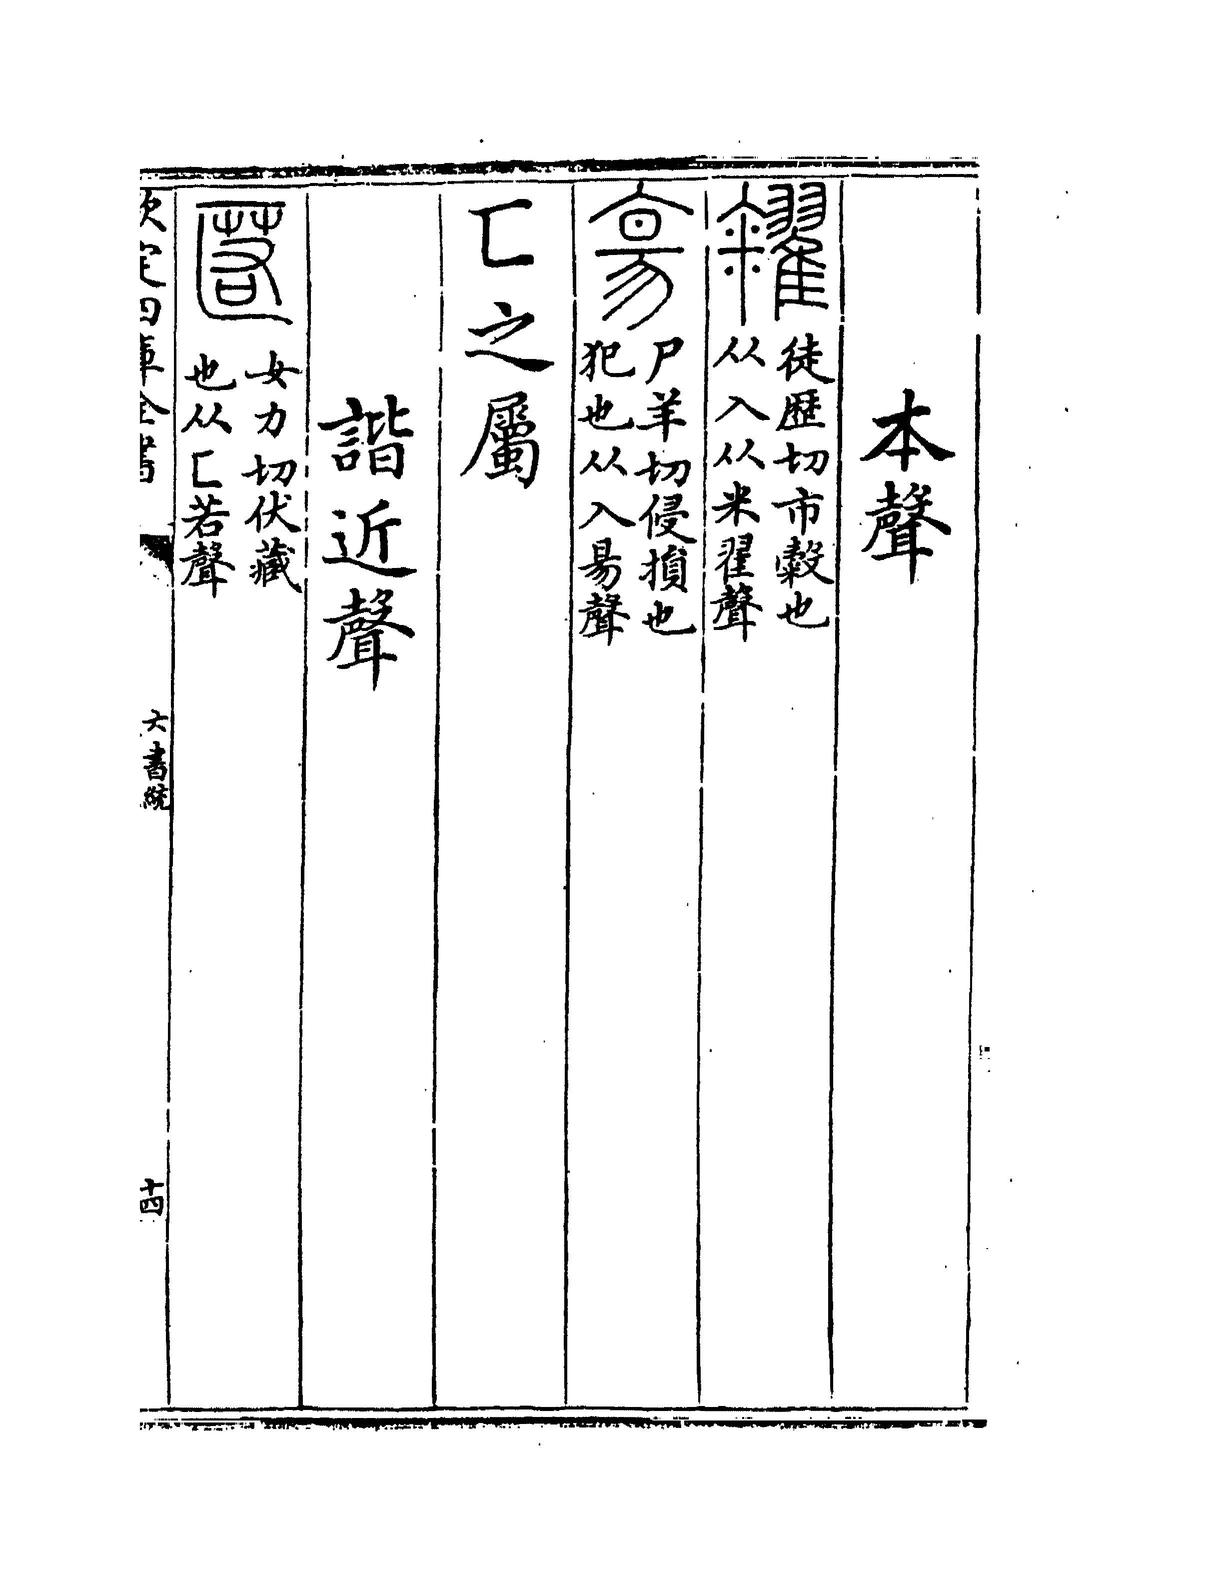 本聲
糴徒歴切市糓也
从入从米翟聲
尸羊切侵損也
犯也从入昜聲
匸之屬
諧近聲
匿女力切伏藏
也从匸若聲
欽定四庫全書
六書統
十四